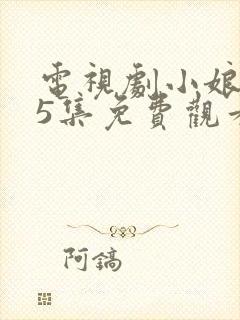 電視劇小娘
5集免費觀
阿鎬